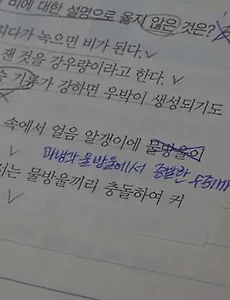 비에 대한 설명으로 옳지 않은 것은?
녹으면 비가 된다.
잰 것을 강우량이라고 한다.
강하면 우박이 생성되기도
속에서 얼음 알갱이에 물방울이
물방울에서 증발한
물방울끼리 충돌하여 커